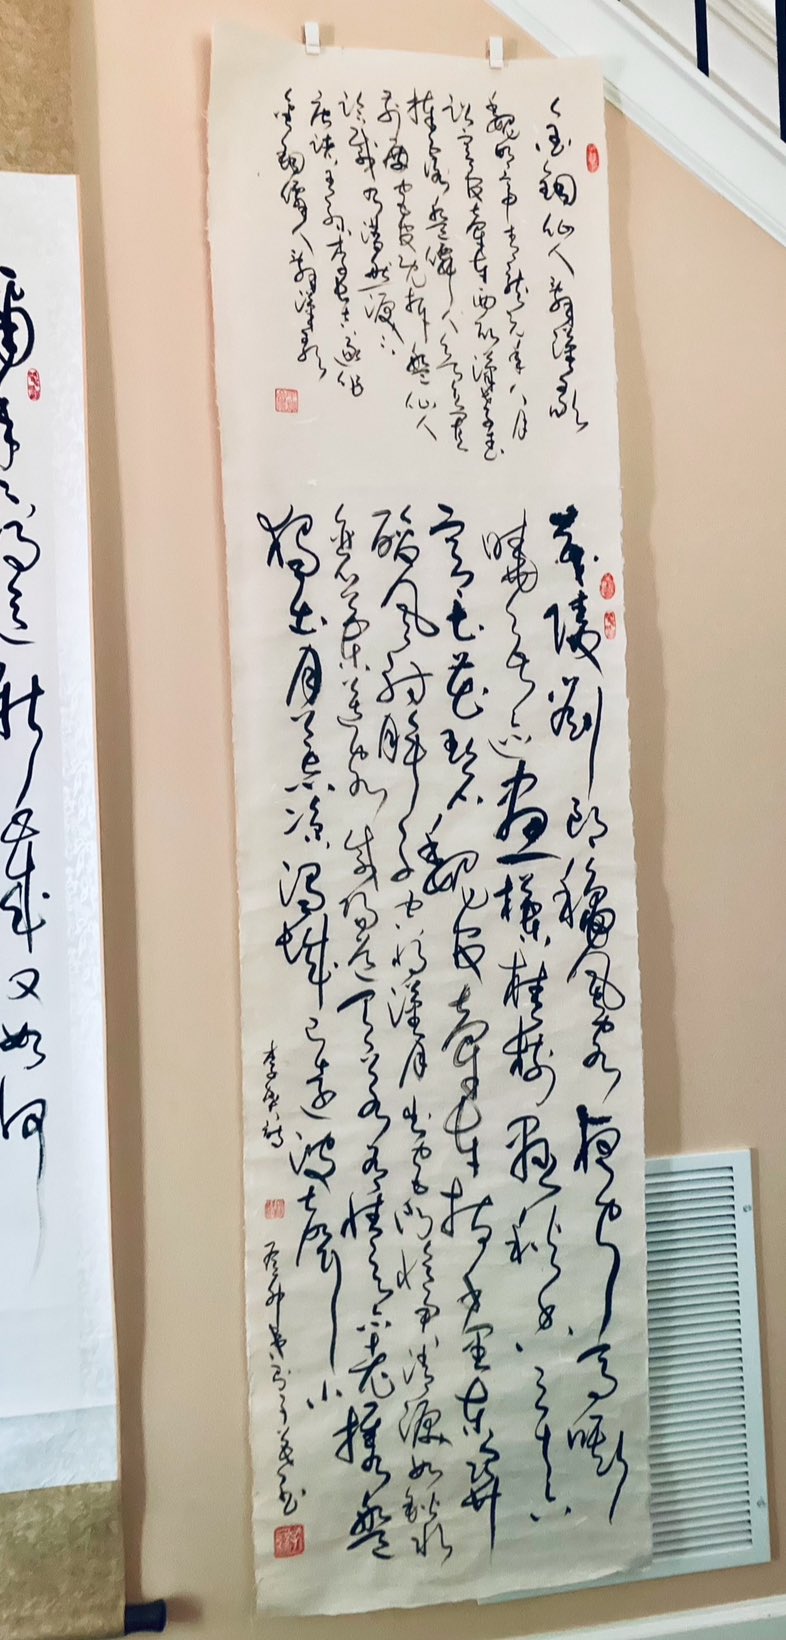 金銅仙人辭漢歌
魏明帝青龍元年八月
詔宮官牽車西取漢孝武
捧露盤僊人欲立置
前殿宮官既拆盤仙人
臨載乃潸然淚下
唐諸王孫李長吉遂作
金銅僊人辭漢歌
茂陵劉郎秋風客夜聞馬嘶
曉無跡畫欄桂樹懸秋香三十六
宮土花碧魏官牽車指千里東關
酸風射眸子空將漢月出宮門憶君清淚如鉛水
衰蘭送客咸陽道天若有情天亦老攜盤
獨出月荒涼渭城已遠波聲小
李賀詩
癸卯
又如何